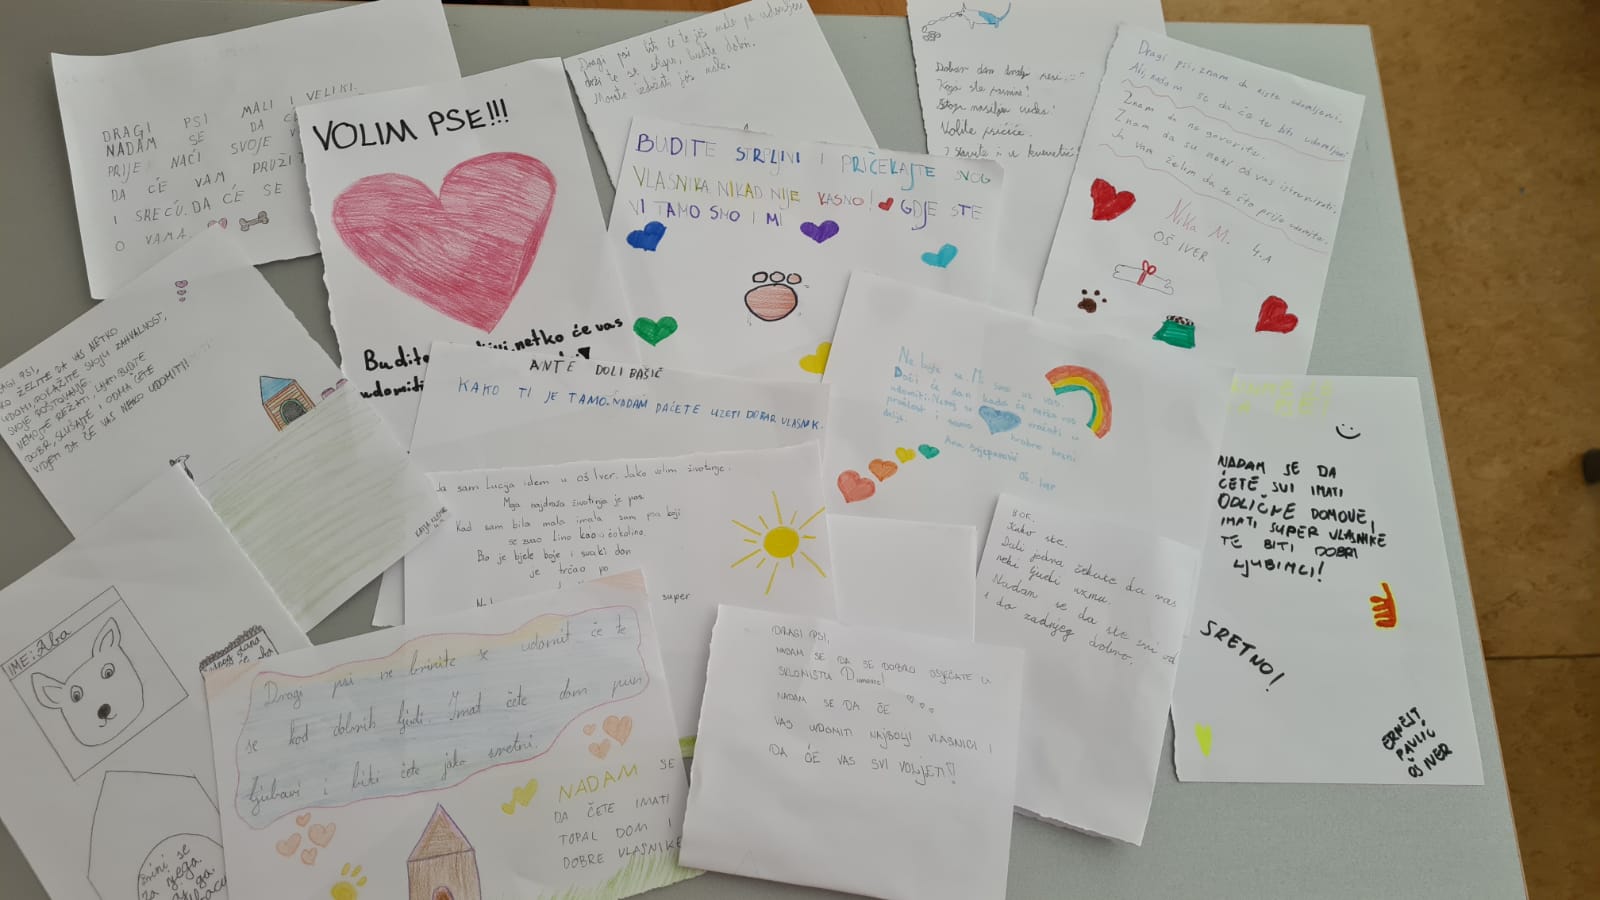 DRAGI PSI MALI I VELIKI.
NADAM SE DA
PRIJE NAĆI SVOJE
DA ĆE VAM PRUŽIT
I SREĆU. DA ĆE SE
O VAMA.
VOLIM PSE!!!
Budite netko će vas
udomiti
Dragi psi biti će te još malo pa udomljeni
drži te se skupa, budite dobri.
Morate izdržati još malo.
BUDITE STRLJIVI I PRIČEKAJTE SVOG
VLASNIKA. NIKAD NIJE KASNO! GDJE STE
VI TAMO SMO I MI
Dobar dan dragi psi
Koja ste pasmina?
Volite pričiće.
Dragi psi, znam da niste udomljeni.
Ali, nadam se da će te biti udomljeni
Znam da ne govorite.
Znam da su neki od vas istrenirati.
Ja vam želim da se što prije udomite.
Nika M. 4.A
OŠ IVER
DRAGI PSI,
AKO ŽELITE DA VAS NETKO
UDOMI POKAŽITE SVOJU ZAHVALNOST,
SVOJE POŠTOVANJE
NEMOJTE REŽATI, LAJATI. BUDITE
DOBRI, SLUŠAJTE I ODMA ĆETE
VIDJETI DA ĆE VAS NETKO UDOMITI!
KATJA
ANTE DOLIBAŠIĆ
KAKO TI JE TAMO. NADAM DAĆETE UZETI DOBAR VLASNIK.
Ne bojte se. Mi smo uz vas.
Doći će dan kada će netko vas
udomiti. Nemoj se vraćati u
prošlost i samo hrabro kreni
dalje.
Ana
Oš. Iver
Ja sam Lucija idem u oš Iver. Jako volim životinje.
Moja najdraža životinja je pas.
Kad sam bila mala imala sam psa koji
se zvao Lino kao čokolino.
Bio je bjele boje i svaki dan
je trčao po
super
BOK.
Kako ste.
Dali jedna čekate da vas
neki ljudi uzmu.
Nadam se da ste svi od
i do zadnjeg dobro.
NADAM SE DA
ĆETE SVI IMATI
ODLIČNE DOMOVE,
IMATI SUPER VLASNIKE
TE BITI DOBRI
LJUBIMCI!
SRETNO!
ERNEST
PAVLIĆ
OŠ IVER
IME: Aba
Brini se
za njega
Dragi psi ne brinite se udomit će te
se kod dobrih ljudi. Imat ćete dom pun
ljubavi i biti ćete jako sretni.
NADAM SE
DA ĆETE IMATI
TOPAL DOM I
DOBRE VLASNIKE
DRAGI PSI,
NADAM SE DA SE DOBRO OSJEĆATE U
SKLONIŠTU Dumovec!
NADAM SE DA ĆE
VAS UDOMITI NAJBOLJI VLASNICI I
DA ĆE VAS SVI VOLJETI!